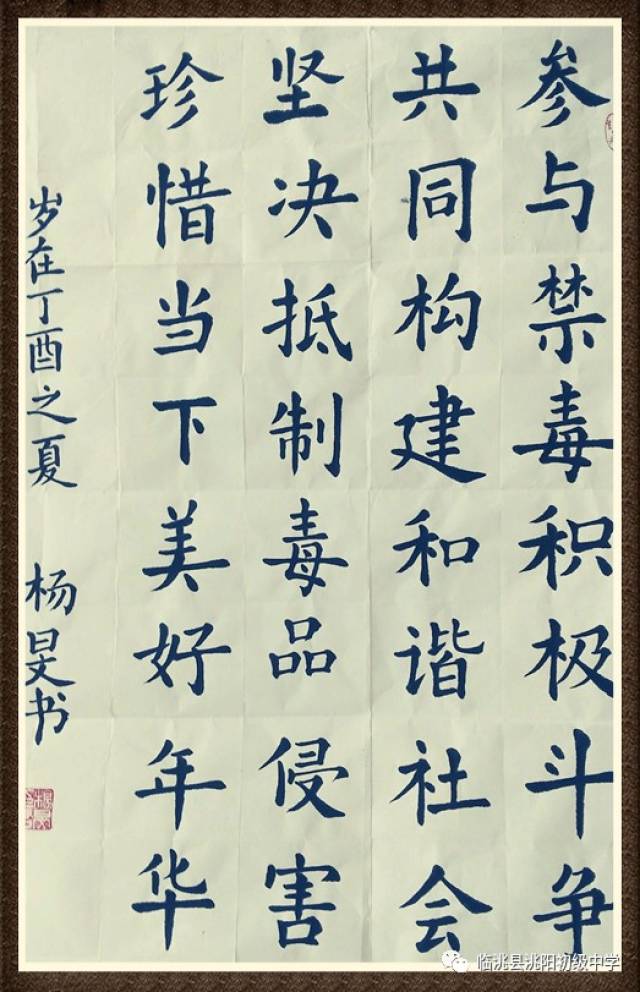 参与禁毒积极斗争
共同构建和谐社会
坚决抵制毒品侵害
珍惜当下美好年华
岁在丁酉之夏 杨旻书
临洮县洮阳初级中学